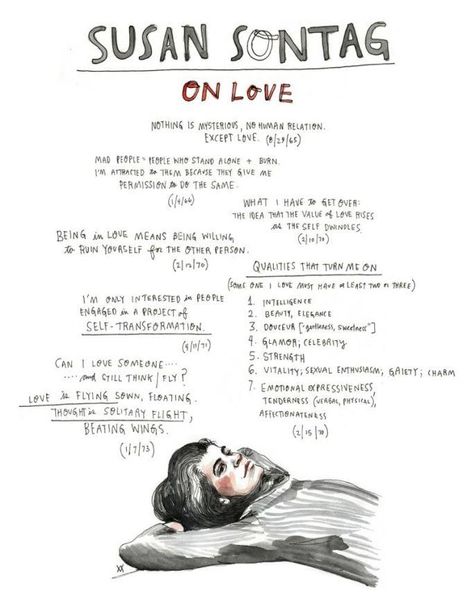 SUSAN SONTAG
ON LOVE
NOTHING IS MYSTERIOUS, NO HUMAN RELATION.
EXCEPT LOVE. (8/29/65)
MAD PEOPLE = PEOPLE WHO STAND ALONE + BURN.
I'M ATTRACTED to THEM BECAUSE THEY GIVE ME
PERMISSION to DO THE SAME.
(1/4/66)
WHAT I HAVE to GET OVER:
THE IDEA THAT THE VALUE of LOVE RISES
as THE SELF DWINDLES.
(2/10/70)
BEING in LOVE MEANS BEING WILLING
to RUIN YOURSELF for THE OTHER PERSON.
(2/12/70)
QUALITIES THAT TURN ME ON
(SOME ONE I LOVE MUST HAVE at LEAST TWO or THREE)
1. INTELLIGENCE
2. BEAUTY, ELEGANCE
3. DOUCEUR ["gentleness, sweetness"]
4. GLAMOR; CELEBRITY
5. STRENGTH
6. VITALITY; SEXUAL ENTHUSIASM; GAIETY; CHARM
7. EMOTIONAL EXPRESSIVENESS,
TENDERNESS (VERBAL, PHYSICAL),
AFFICTIONATENESS
(2/15/70)
I'M ONLY INTERESTED in PEOPLE
ENGAGED in A PROJECT of
SELF-TRANSFORMATION.
CAN I LOVE SOMEONE....
....and STILL THINK/FLY?
LOVE is FLYING SOWN, FLOATING.
THOUGHT is SOLITARY FLIGHT,
BEATING WINGS.
(1/7/73)